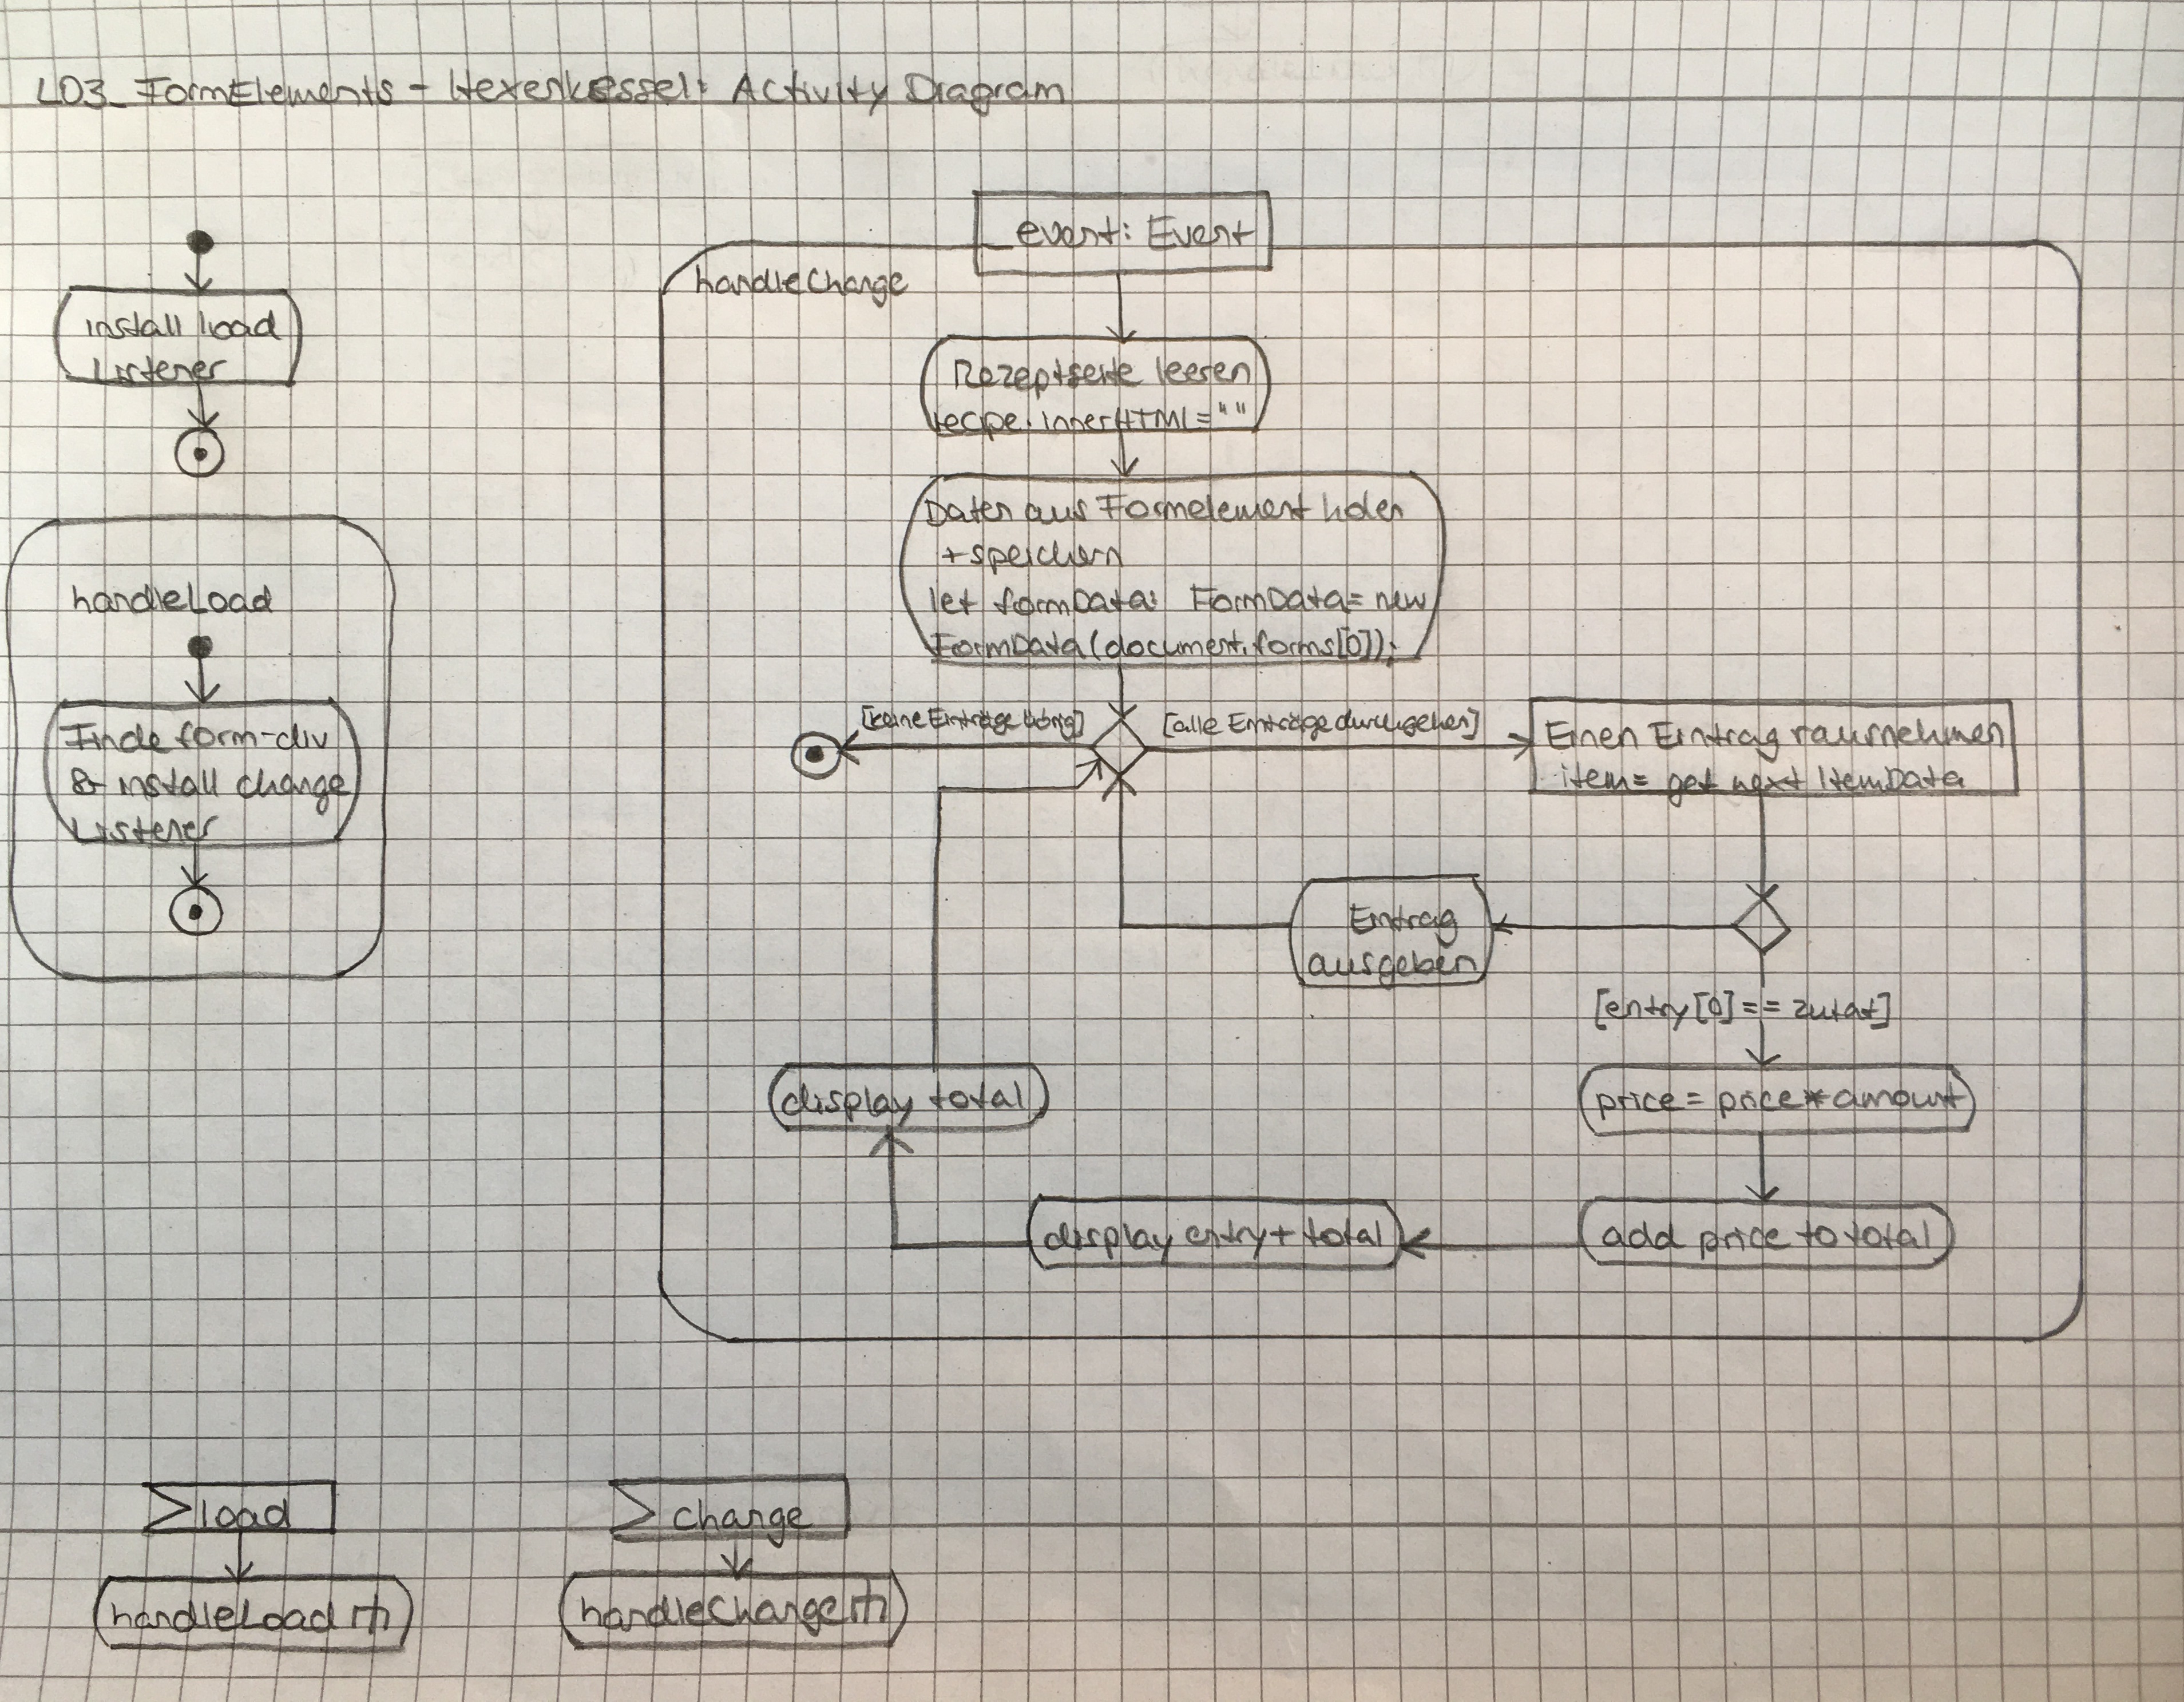 L03_FormElements - Hexenkessel: Activity Diagram
install load
Listener
handleLoad
Finde form-div
& install change
Listener
_event: Event
handleChange
Rezeptseite leeren
recipe.innerHTML = ""
Daten aus Formelement holen
+ speichern
let formData: FormData = new
FormData(document.forms[0]);
[keine Einträge übrig]
[alle Einträge durchgehen]
Einen Eintrag rausnehmen
item = get next ItemData
Eintrag
ausgeben
[entry[0] == zutat]
price = price * amount
add price to total
display entry + total
display total
load
handleLoad
change
handleChange